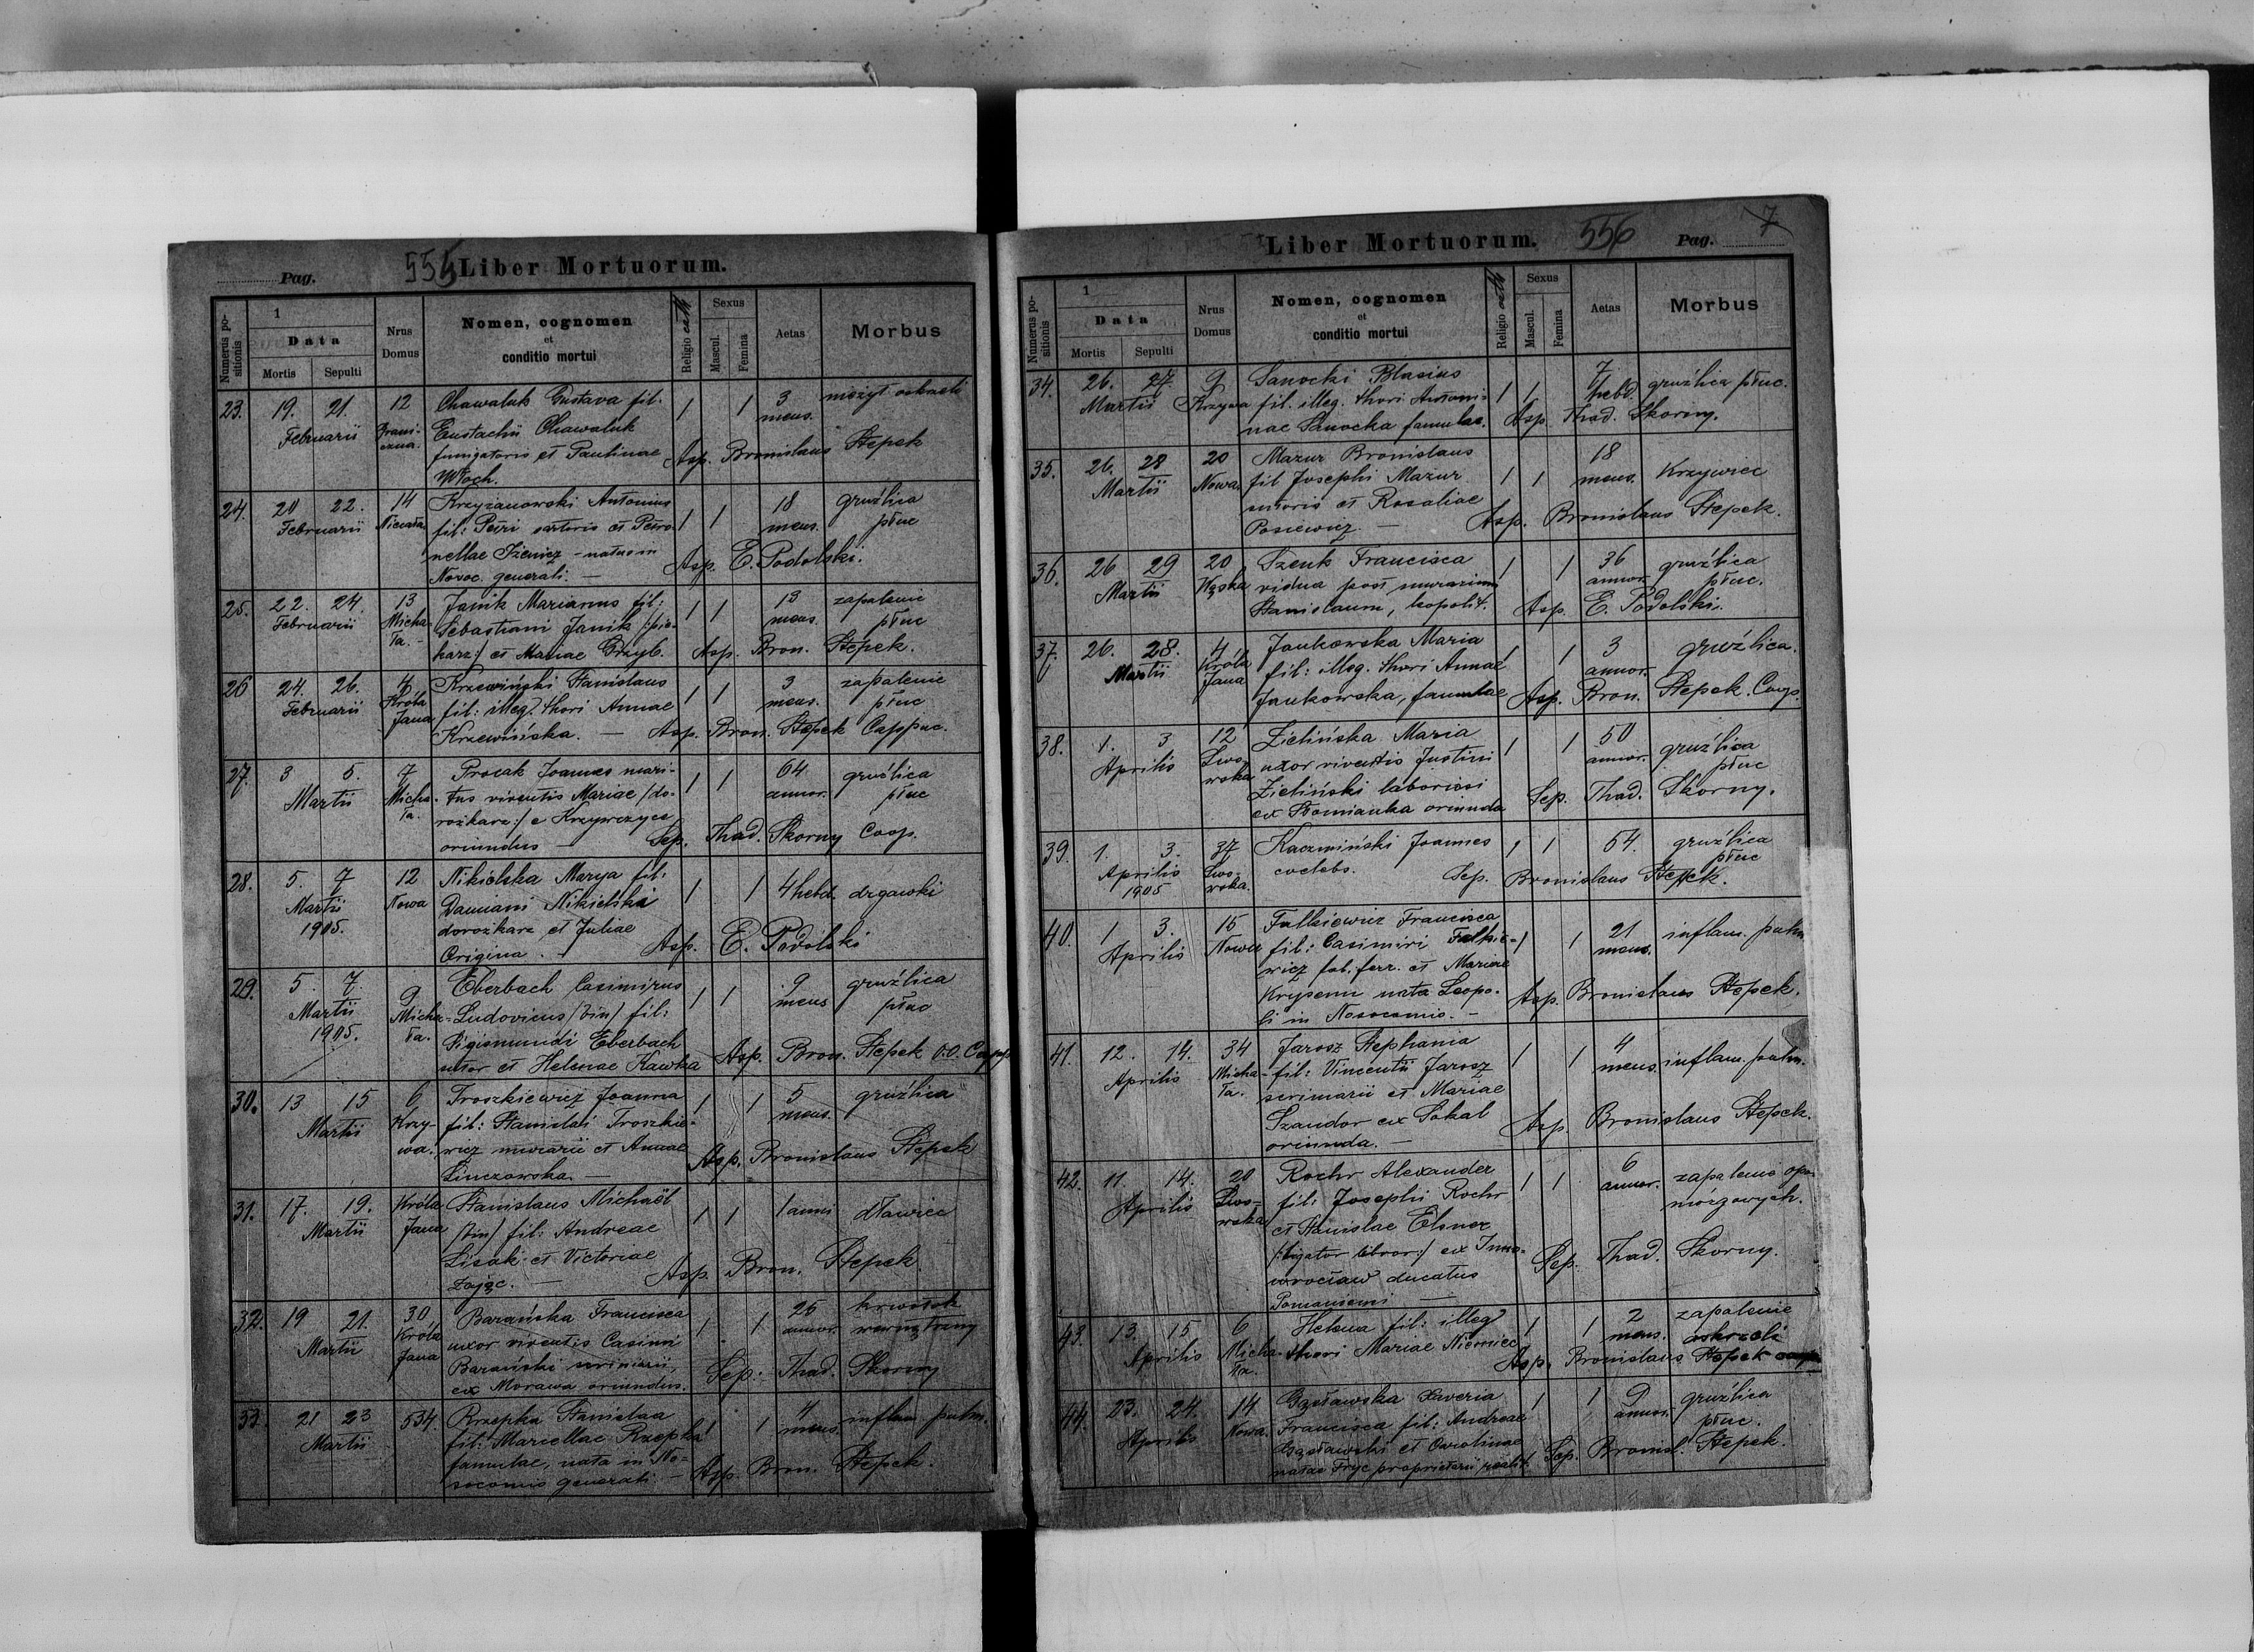 Pag. 555 Liber Mortuorum.
Numerus positionis
1
Data
Mortis Sepulti
Nrus Domus
Nomen, cognomen
et
conditio mortui
Religio cath
Sexus
Mascul. Femina
Aetas
Morbus
23. 19. 21. Februarii 12
Chawaluk Gustava fil.
Eustachii Chawaluk
fumigatoris et Paulinae
Włoch.
1 1 3 mens. nieżyt oskrzeli
Asp. Bronislaus Stepek
24. 20 22. Februarii 14
Krzyżanowski Antonius
fil: Petri sartoris et Petro-
nellae - natus in
Nosoc. generali. —
1 1 18 mens. gruźlica płuc
Asp. E. Podolski.
25. 22. 24. Februarii 13 Micha-ła.
Janik Marianus fil:
Sebastiani Janik /:pie-
karz:/ et Mariae Grzyb.
1 1 13 mens. zapalenie płuc
Asp. Bron. Stepek.
26 24. 26. Februarii 4 Króla Jana
Krzewiński Stanislaus
fil: illeg. thori Annae
Krzewińska. —
1 1 3 mens. zapalenie płuc
Asp. Bron. Stepek
27. 3 5. Martii 7 Micha-ła.
Procak Joannes mari-
tus viventis Mariae /do-
rożkarz:/ e Krzywczyce
oriundus —
1 1 64 annor. gruźlica płuc
Sep. Thad. Skorny Coop.
28. 5. 7 Martii 1905. 12 Nowa
Nikielska Marya fil:
Damiani Nikielski
dorożkarz et Juliae
Origina. —
1 1 4 hebd. drgawki
Asp. E. Podolski
29. 5. 7. Martii 1905. 9 Micha-ła.
Eberbach Casimirus
Ludovicus /bin/ fil:
Sigismundi Eberbach
et Helenae Kawka
1 1 9 mens gruźlica płuc
Asp. Bron. Stepek
30. 13 15 Martii 6 Krzy-wa.
Troszkiewicz Joanna
fil: Stanislai Troszkie-
wicz murarii et Annae
Linczowska. —
1 1 5 mens. gruźlica
Asp. Bronislaus Stepek
31. 17. 19. Martii Króla Jana
Stanislaus Michaël
/bin/ fil: Andreae
Lisak et Victoriae
Zając. —
1 1 1 anni dławiec
Asp. Bron. Stepek
32. 19 21. Martii 30 Króla Jana
Barańska Francisca
uxor viventis Casimi
Barański scriniarii,
ex Morawa oriundus.
1 1 26 annor. krwotok wewnętrzny
Sep: Thad. Skorny
33. 21 23 Martii 534.
Rzepka Stanislaa
fil: Marcellae Rzepka
famulae, nata in No-
socomio generali —
1 1 4 mens. inflam. pulm.
Asp. Bron. Stepek.
Liber Mortuorum. 556 Pag. 7
Numerus positionis
1
Data
Mortis Sepulti
Nrus Domus
Nomen, cognomen
et
conditio mortui
Religio cath
Sexus
Mascul. Femina
Aetas
Morbus
34. 26. 27. Martii 9 Krzywa
Sanocki Blasius
fil. illeg. thori Antoni-
nae Sanocka famulae.
1 1 7 hebd. gruźlica płuc.
Asp. Thad. Skorny.
35. 26. 28 Martii 20 Nowa
Mazur Bronislaus
fil Josephi Mazur
sutoris et Rosaliae
Posiewicz —
1 1 18 mens. Krzywice
Asp. Bronislaus Stepek.
36. 26 29 Martii 20 Wąska
Szenk Francisca
vidua post murarium
Stanislaum, leopolit.
1 1 36 annor. gruźlica płuc.
Asp. E. Podolski.
37. 26. 28. Martii 4 Króla Jana
Jankowska Maria
fil: illeg. thori Annae
Jankowska, famulae
1 1 3 annor. gruźlica.
Asp. Bron. Stepek. Coop.
38. 1. 3 Aprilis 12 Lwo-wska
Zielińska Maria
uxor viventis Justini
Zieliński laboriosi
ex Słomianka oriunda
1 1 50 annor. gruźlica płuc
Sep. Thad. Skorny.
39. 1. 3. Aprilis 1905 37 Lwo-wska.
Kaczmiński Joannes
coelebs.
1 1 64. gruźlica płuc
Sep. Bronislaus Stepek.
40. 1 3. Aprilis 15 Nowa
Falkiewicz Francisca
fil: Casimiri Falkie-
wicz fab. ferr. et Mariae
nata Leopo-
li in Nosocomio. —
1 1 21 mens. inflam. pulm
Asp. Bronislaus Stepek.
41. 12. 14. Aprilis 34 Micha-ła.
Jarosz Stephania
fil: Vincentii Jarosz
scriniarii et Mariae
Szandor ex Sokal
oriunda. —
1 1 4 mens. inflam. pulm.
Asp. Bronislaus Stepek.
42. 11. 14. Aprilis 20 Lwo-wska
Rochr Alexander
fil: Josephi Rochr
et Stanislae Elsner
/:ligator libror:/ ex Inno-
wrocław ducatus
—
1 1 6 annor. zapalenie opon mózgowych.
Sep. Thad. Skorny.
43. 13. 15 Aprilis 6 Micha-ła.
Helena fil: illeg
thori Mariae Niemiec
1 1 2 mens. zapalenie oskrzeli
Asp. Bronislaus Stepek
44 23. 24. Aprilis 14 Nowa.
Gąsławska Xaveria
Francisca fil: Andreae
Gąsławski et Carolinae
natae Fryc proprietarii realit.
1 1 9 annor. gruźlica płuc.
Sep. Bronisl. Stepek.